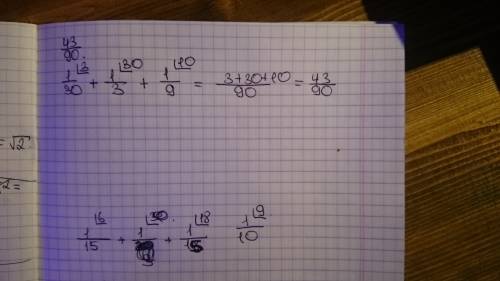 43/90.
1/30 ⌊3 + 1/3 ⌊30 + 1/9 ⌊10 = 3+30+10/90 = 43/90
= √2
2 =
1/15 ⌊6 + 1/3 ⌊30 . + 1/15 ⌊18 1/10 ⌊9